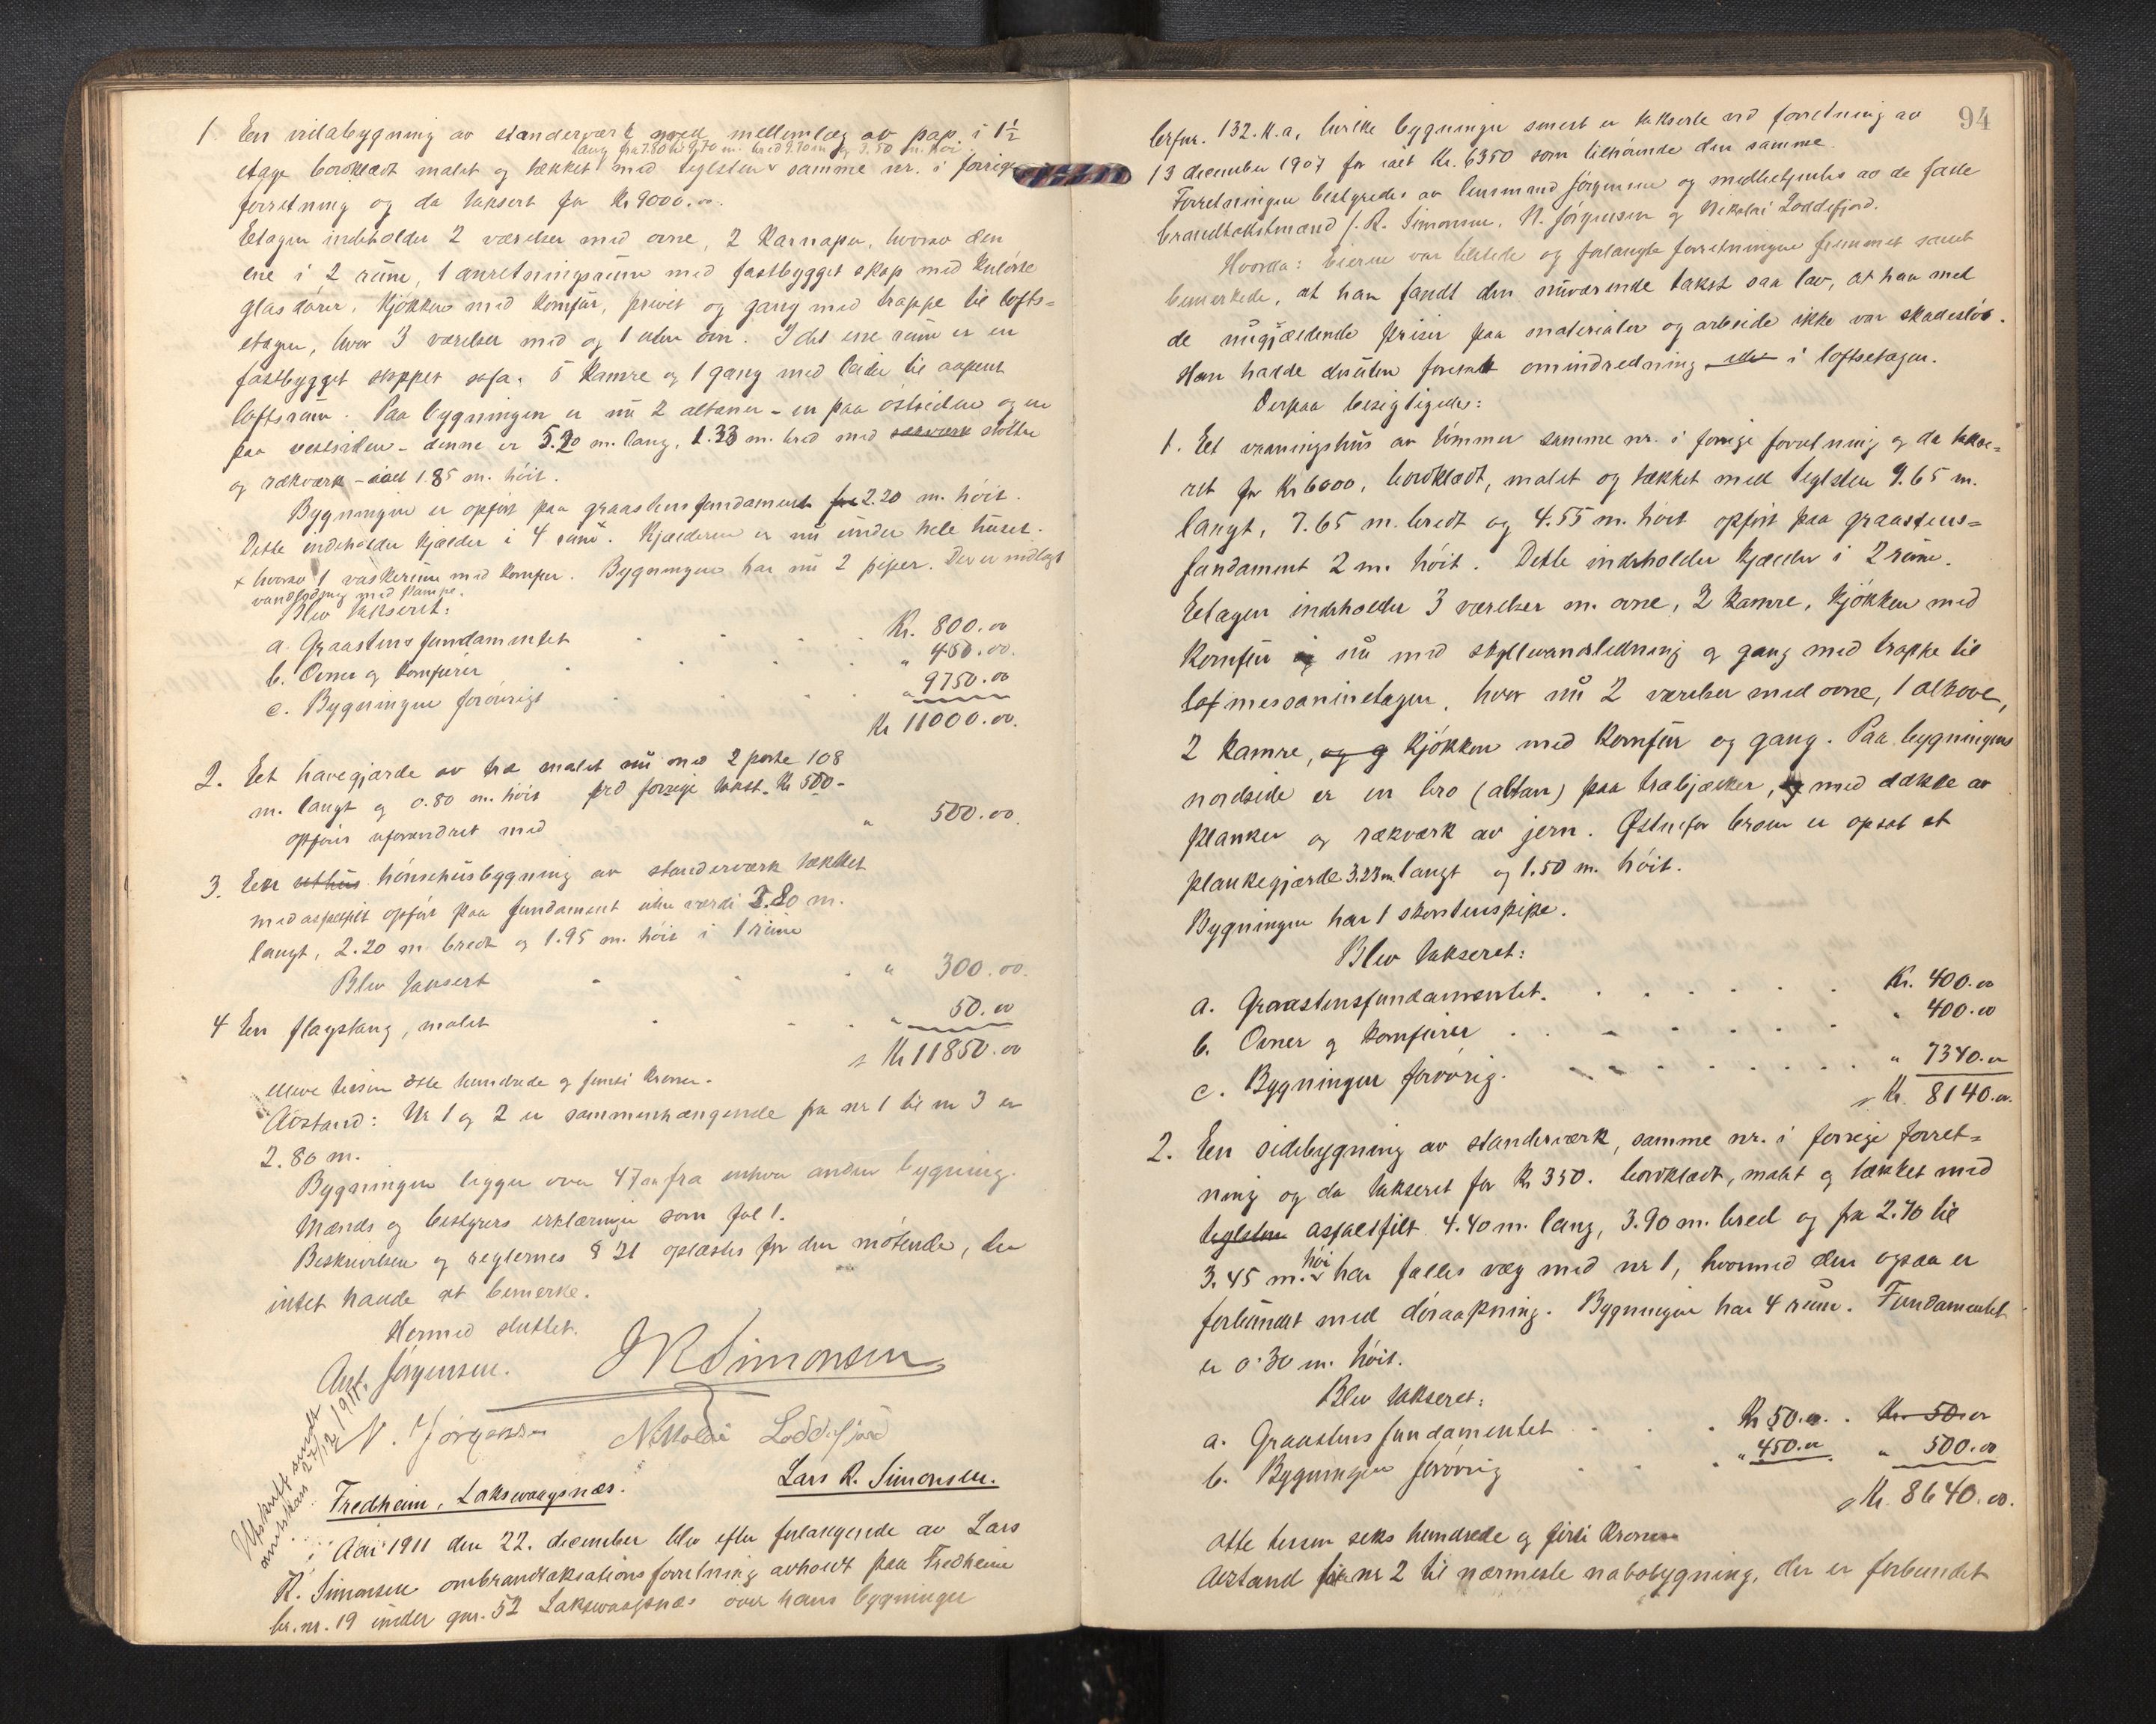 1 Een villabygning av standerværk med mellemlæg av pap i 1½
lang fra 7.80 til 9.70 m. bred 9.70 m og 3.50 m. høi
etage bordklædt malet og tækket med teglsten samme nr. i forrige
forretning og da taksert for Kr 9000.00.
Etagen indeholder 2 værelser med ovne, 2 karnaper, hvorav den
ene i 2 rum, 1 anretningsrum med fastbygget skap med kulørte
glasdører, kjøkken med komfur, privet og gang med trappe til lofts=
etagen, hvor 3 værelser med og 1 uten ovn. I det ene rum er en
fastbygget stoppet sofa. 5 kamre og 1 gang med leider til aapent
loftsrum. Paa bygningen er nu 2 altaner - en paa østsiden og en
paa vestsiden - denne er 5.20 m. lang, 1.33 m. bred med støtter
og rækværk - 1.85 m. høit.
Bygningen er opført paa graastensfundament 2.20 m. høit.
Dette indeholder kjælder i 4 rum. Kjælderen er nu under hele huset.
x hvorav 1 vaskerum med komfur. Bygningen har nu 2 piper. Der er indlagt
vandledning med kumpe.
Blev takseret:
a. Graastensfundamentet Kr. 800.00
b. Ovner og komfurer " 450.00.
c. Bygningen forøvrigt " 9750.00
Kr 11000.00.
2. Eet havegjærde av træ malet nu med 2 porte 108
m. langt og 0.80 m. høit pro forrige takst. Kr 500 -
opføres uforandret med " 500.00.
3. Een uthus hønsehusbygning av standerværk tækket
med asfaltfilt opført paa fundament uten værdi 3.80 m.
langt, 2.20 m. bredt og 1.95 m. høit i 1 rum
Blev taksert " 300.00.
4 En flagstang, malet " 50.00
Kr 11850.00
elleve tusen otte hundrede og femti kroner.
Avstand: Nr 1 og 2 er sammenhængende fra nr 1 til nr 3 er
2.80 m.
Bygningen ligger over 47 m fra enhver anden bygning.
Mænds og bestyrers erklæringer som fol 1.
Beskrivelsen og reglernes § 21 oplæstes for den møtende, der
intet havde at bemerke.
Hermed sluttet.
Ant. Jørgensen. J R Simonsen
N. Jørgensen Nikolai Loddefjord
Utskrift sendt
amtskass 27/12 1911
Fredheim, Laksevaagsnæs. Lars R. Simonsen.
Aar 1911 den 22. december blev efter forlangende av Lars
R. Simonsen ombrandtaksationsforretning avholdt paa Fredheim
br. nr. 19 under gnr. 52 Laksevaagsnæs over hans bygninger
94
brfnr. 132.K.a, hvilke bygninger senest er takserte ved forretning av
13 december 1907 for ialt Kr. 6350 som tilhørende den samme.
Forretningen bestyredes av lensmand Jørgensen og medbetjentes av de faste
brandtakstmænd J. R. Simonsen, N. Jørgensen og Nikolai Loddefjord.
Hvorda: Eieren var tilstede og forlangte forretningen fremmet samt
bemerkede, at han fandt den nuværende takst saa lav, at han med
de nugjældende priser paa materialer og arbeide ikke var skadesløs.
Han havde desuten foretat omindredning i loftsetagen.
Derpaa besigtigedes:
1. Et vaaningshus av tømmer samme nr. i forrige forretning og da takse=
ret for Kr 6000, bordklædt, malet og tækket med teglsten 9.65 m.
langt, 7.65 m. bredt og 4.55 m. høit opført paa graastens=
fundament 2 m. høit. Dette indeholder kjælder i 2 rum.
Etagen indeholder 3 værelser m. ovne, 2 kamre, kjøkken med
komfur og nu med skyllevandsledning og gang med trappe til
lof messaninetagen, hvor nu 2 værelser med ovne, 1 alkove,
2 kamre, og g kjøkken med komfur og gang. Paa bygningens
nordside er en bro (altan) paa træbjælker, og med dække av
planker og rækværk av jern. Østenfor broen er opsat et
plankegjærde 3.23 m. langt og 1.50 m. høit.
Bygningen har 1 skorstenspipe.
Blev takseret:
a. Graastensfundamentet. Kr. 400.00
b. Ovner og komfurer " 400.00
c. Bygningen forøvrig. " 7340.00
Kr. 8140.00.
2. En sidebygning av standerværk, samme nr. i forrige forret=
ning og da takseret for Kr 350. bordklædt, malet og tækket med
teglsten asfaltfilt 4.40 m. lang, 3.90 m. bred og fra 2.70 til
3.45 m. høi har fælles væg med nr 1, hvormed den ogsaa er
forbundet med døraapning. Bygningen har 4 rum. Fundamentet
er 0.30 m. høit.
Blev takseret:
a. Graastensfundamentet Kr 50.00. Kr 50.00
b. Bygningen forøvrig " 450.00 " 500.00
Kr. 8640.00.
otte tusen seks hundrede og firti kroner
Avstand fra nr 2 til nærmeste nabobygning, der er forbundet